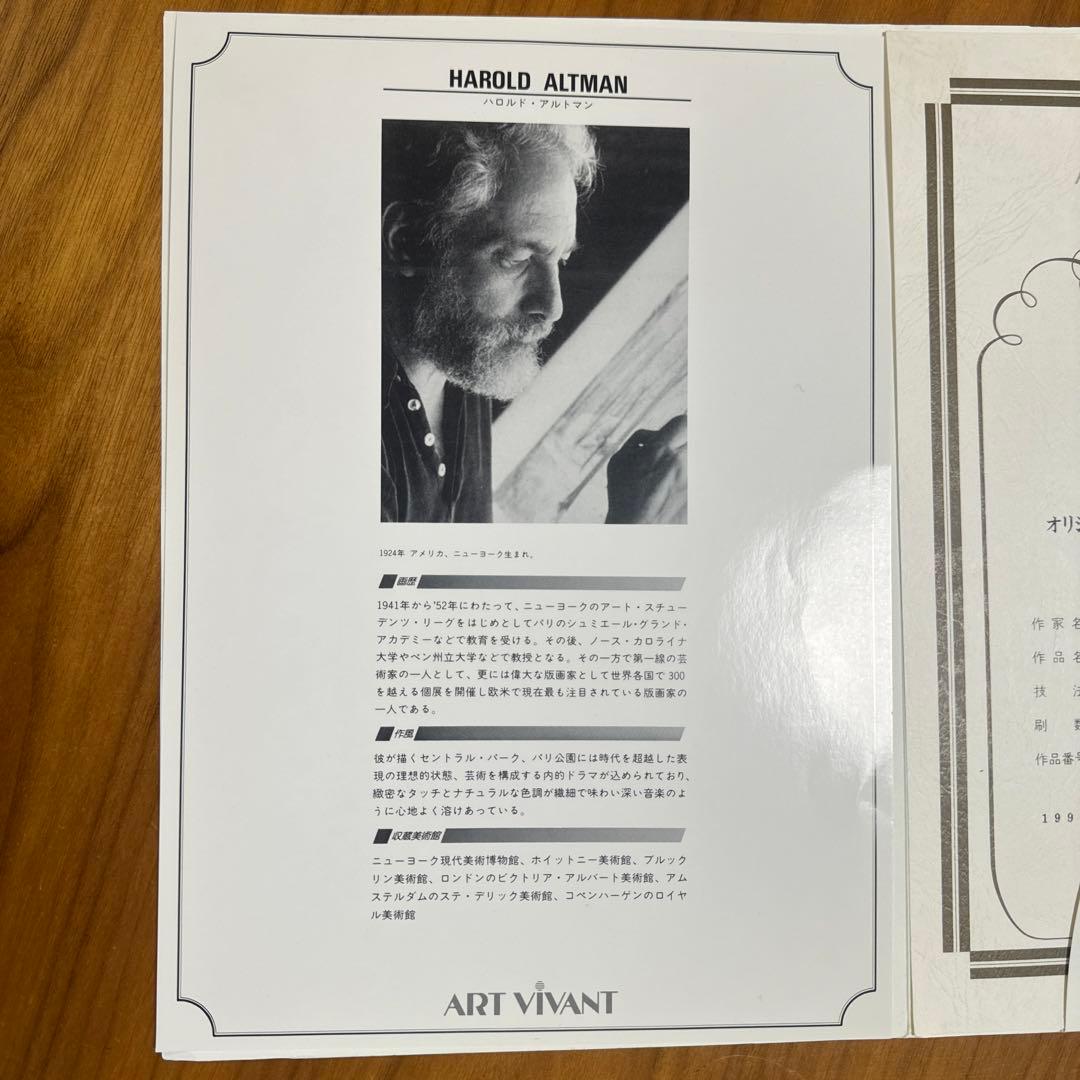 HAROLD ALTMAN
ハロルド・アルトマン
1924年 アメリカ、ニューヨーク生まれ。
画歴
1941年から'52年にわたって、ニューヨークのアート・スチュー
デンツ・リーグをはじめとしてパリのシュミエール・グランド・
アカデミーなどで教育を受ける。その後、ノース・カロライナ
大学やペン州立大学などで教授となる。その一方で第一線の芸
術家の一人として、更には偉大な版画家として世界各国で300
を越える個展を開催し欧米で現在最も注目されている版画家の
一人である。
作風
彼が描くセントラル・パーク、パリ公園には時代を超越した表
現の理想的状態、芸術を構成する内的ドラマが込められており、
緻密なタッチとナチュラルな色調が繊細で味わい深い音楽のよ
うに心地よく溶けあっている。
収蔵美術館
ニューヨーク現代美術博物館、ホイットニー美術館、ブルック
リン美術館、ロンドンのビクトリア・アルバート美術館、アム
ステルダムのステ・デリック美術館、コペンハーゲンのロイヤ
ル美術館
ART VIVANT
オリジ
作家名
作品名
技法
刷数
作品番号
199